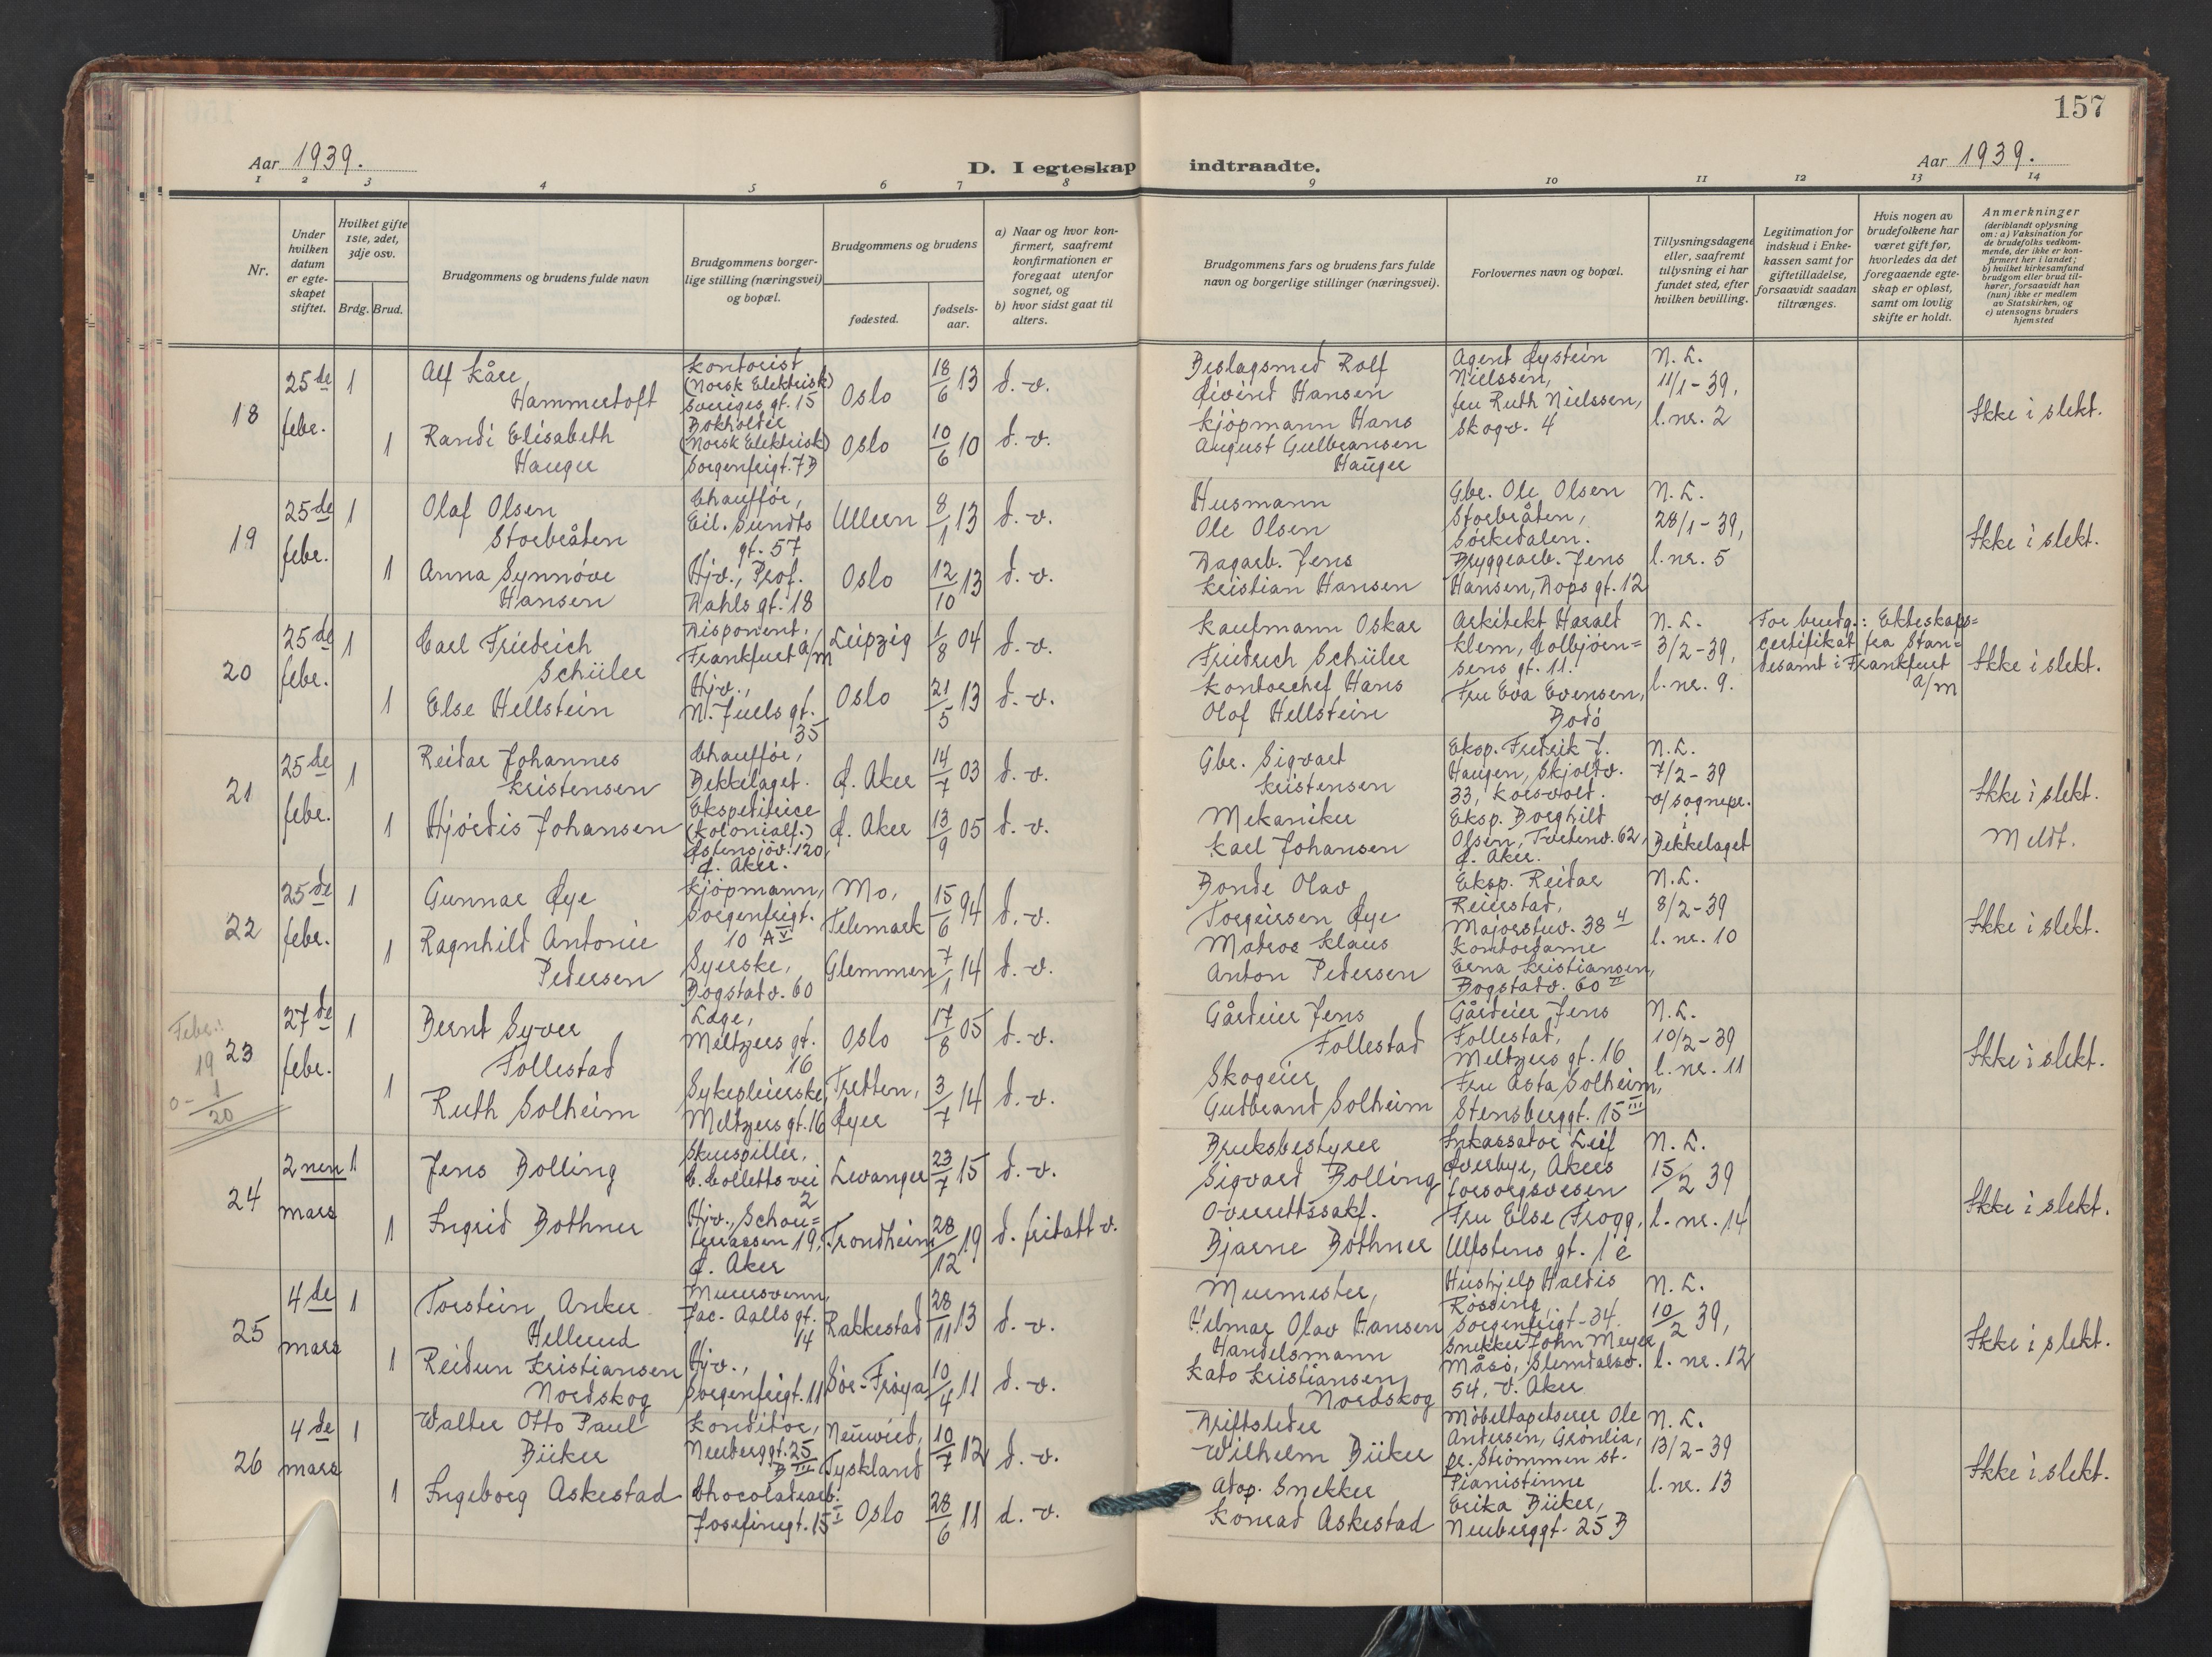 157
Aar 1939.
D. I egteskap indtraadte.
Aar 1939.
1 2 3 4 5 6 7 8 9 10 11 12 13 14
Nr.
Under hvilken datum er egteskapet stiftet.
Hvilket gifte 1ste, 2det, 3dje osv.
Brdg. Brud.
Brudgommens og brudens fulde navn
Brudgommens borgerlige stilling (næringsvei) og bopæl.
Brudgommens og brudens
fødested.
fødselsaar.
a) Naar og hvor konfirmert, saafremt konfirmationen er foregaat utenfor sognet, og
b) hvor sidst gaat til alters.
Brudgommens fars og brudens fars fulde navn og borgerlige stillinger (næringsvei).
Forlovernes navn og bopæl.
Tillysningsdagene eller, saafremt tillysning ei har fundet sted, efter hvilken bevilling.
Legitimation for indskud i Enkekassen samt for giftetilladelse, forsaavidt saadan tiltrænges.
Hvis nogen av brudefolkene har været gift før, hvorledes da det foregaaende egteskap er opløst, samt om lovlig skifte er holdt.
Anmerkninger (deriblandt oplysning om: a) Vaksination for de brudefolks vedkommende, der ikke er konfirmert her i landet; b) hvilket kirkesamfund brudgom eller brud tilhører, forsaavidt han (hun) ikke er medlem av Statskirken, og c) utensogns bruders hjemsted
18
25de febr.
1
Alf Kåre Hammertoft
Kontorist (Norsk Elektrisk) Sveriges gt. 15
Oslo
18/6 13
d. v.
1
Randi Elisabeth Hauger
Bokholder (Norsk Elektrisk) Sorgenfrigt. 7B
Oslo
10/6 10
d. v.
Beslagsmed Rolf Eivind Hansen
Kjøpmann Hans August Gulbransen Hauger
Agent Øystein Nielssen, fru Ruth Nielssen, Skogv. 4
N. L. 11/1-39, l. nr. 2
Ikke i slekt.
19
25de febr.
1
Olaf Olsen Storbråten
Chauffør, Eil. Sundts gt. 57
Ullern
8/1 13
d. v.
1
Anna Synnøve Hansen
Hjv., Prof. Dahls gt. 18
Oslo
12/10 13
d. v.
Husmann Ole Olsen
Dagarb. Jens Kristian Hansen
Gbr. Ole Olsen Storbråten, Sørkedalen.
Bryggearb. Jens Hansen, Dops gt. 12
N. L. 28/1-39, l. nr. 5
Ikke i slekt.
20
25de febr.
1
Carl Friedrich Schüler
Disponent, Frankfurt a/m
Leipzig
1/8 04
d. v.
1
Else Hellstein
Hjv., N. Juels gt. 35
Oslo
21/5 13
d. v.
Kaufmann Oskar Friedrich Schüler
Kontorchef Hans Olof Hellstein
Arkitekt Harald Klem, Colbjørnsens gt. 11.
Fru Eva Evensen, Bodø
N. L. 3/2-39, l. nr. 9.
For brudg.: Ekteskapscertifikat fra Standesamt i Frankfurt a/m
Ikke i slekt.
21
25de febr.
1
Reidar Johannes Kristensen
Chauffør, Bekkelaget.
Ø. Aker
14/7 03
d. v.
1
Hjørdis Johansen
Ekspeditrice (Kolonialf.) Østensjøv. 120, Ø. Aker.
Ø. Aker
13/9 05
d. v.
Gbr. Sigvart Kristensen
Mekaniker Karl Johansen
Eksp. Fredrik J. Haugen, Skjoldv. 33, Korsvold.
Eksp. Borghild Olsen, Tvetenv. 62, Ø. Aker.
N. L. 7/2-39 v/sognepr. i Bekkelaget
Ikke i slekt.
Meldt.
22
25de febr.
1
Gunnar Øye
Kjøpmann, Sorgenfrigt. 10 A V
Mo, Telemark
15/6 94
d. v.
1
Ragnhild Antonie Pedersen
Syerske, Bogstadv. 60
Glemmen
7/1 14
d. v.
Bonde Olav Torgeirssen Øye
Matros Klaus Anton Pedersen
Eksp. Reidar Reierstad, Majorstuv. 38 4
Kontordame Erna Kristiansen, Bogstadv. 60 II
N. L. 8/2-39 l. nr. 10
Ikke i slekt.
Febr.: 19
0-1/20
23
27de febr.
1
Bernt Syver Follestad
Læge, Meltzers gt. 16
Oslo
17/8 05
d. v.
1
Ruth Solheim
Sykepleierske, Meltzers gt. 16
Tretten, Øyer
3/7 14
d. v.
Gårdeier Jens Follestad
Skogeier Gudbrand Solheim
Gårdeier Jens Follestad, Meltzers gt. 16
Fru Asta Solheim, Stensberggt. 15 III
N. L. 10/2-39 l. nr. 11
Ikke i slekt.
24
2nen mars
1
Jens Bolling
Skuespiller, C. Colletts vei 2
Levanger
23/7 15
d. v.
1
Ingrid Bothner
Hjv., Schouterrassen 19, Ø. Aker
Trondheim
28/12 19
d. fritatt v.
Bruksbestyrer Sigvard Bolling
Overrettssakf. Bjarne Bothner
Inkassator Leif Øverbye, Akers forsorgsvesen
Fru Else Frogg, Ulfstens gt. 1 c
N. L. 15/2 39 l. nr. 14
Ikke i slekt.
25
4de mars
1
Torstein Anker Hellerud
Murersvenn, Jac. Aalls gt. 14
Rakkestad
28/11 13
d. v.
1
Reidun Kristiansen Nordskog
Hjv., Sorgenfrigt. 11
Sør-Frøya
10/4 11
d. v.
Murmester, Hilmar Olav Hansen
Handelsmann Kato Kristiansen Nordskog
Hushjelp Haldis Røssing, Sorgenfrigt. 34.
Snekker John Meyer Måsø, Slemdalsv. 54, V. Aker
N. L. 10/2 39, l. nr. 12
Ikke i slekt.
26
4de mars
1
Walter Otto Paul Büker
Konditor, Neuberggt. 25 B III
Neuwied, Tyskland
10/7 12
d. v.
1
Ingeborg Askestad
Chocoladearb. Josefinegt. 15 I
Oslo
28/6 11
d. v.
Driftsleder Wilhelm Büker
Adop. Snekker Konrad Askestad
Møbeltapetserer Ole Andersen, Grønlia, pr. Strømmen st.
Pianistinne Erika Büker, Neuberggt. 25 B
N. L. 13/2-39 l. nr. 13
Ikke i slekt.